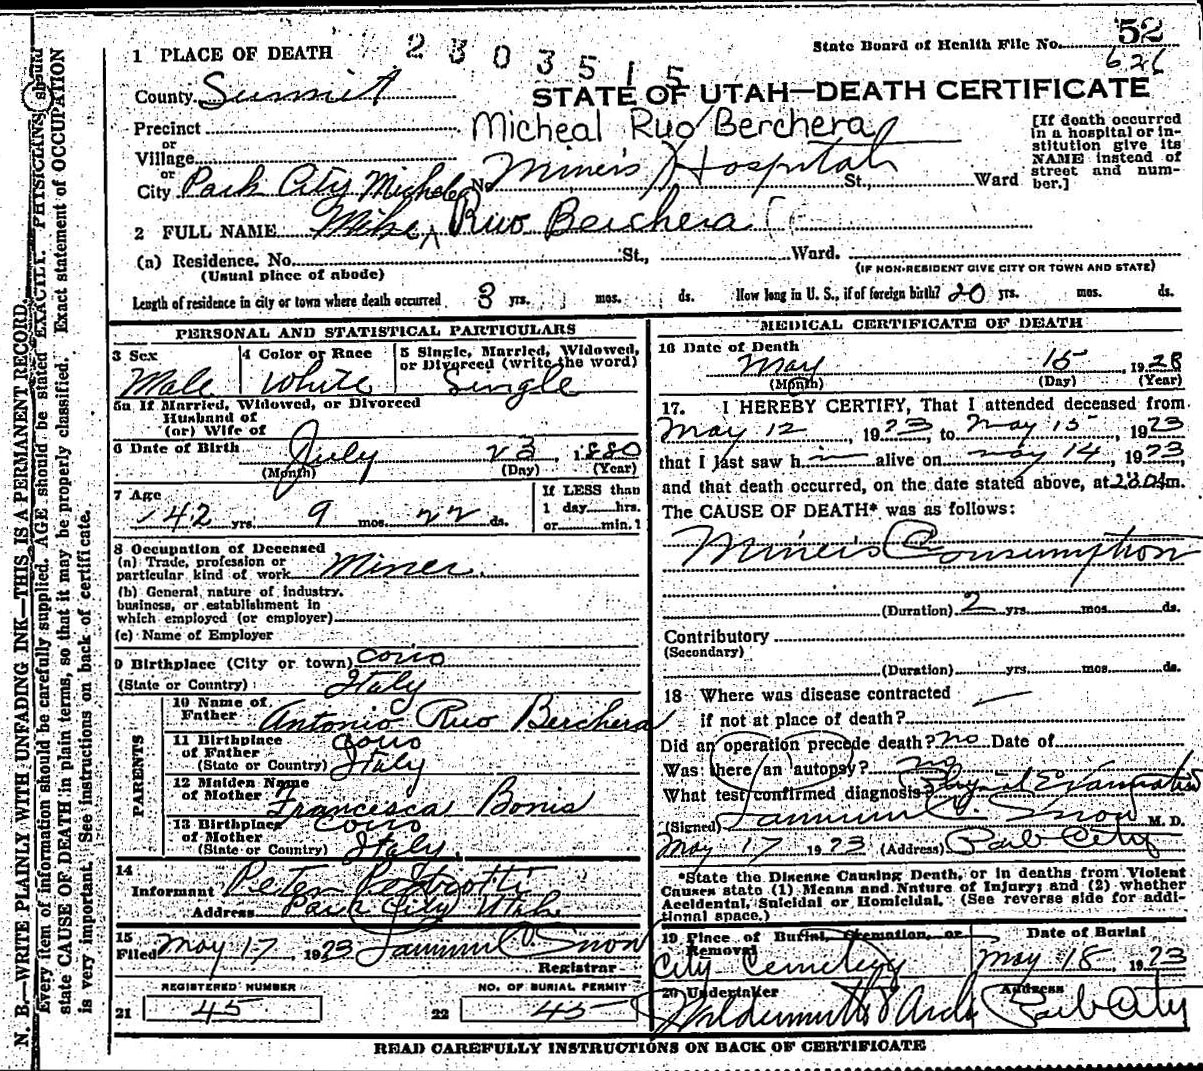 52
State Board of Health File No.
626
2303515
1 PLACE OF DEATH
County Summit
STATE OF UTAH—DEATH CERTIFICATE
Precinct
Micheal Ruo Berchera
or
Village
or
City Park City No. Miner's Hospital St., Ward
[If death occurred in a hospital or institution give its NAME instead of street and number.]
Michele
2 FULL NAME Mike Ruo Berchera
(a) Residence. No. St., Ward.
(Usual place of abode) (IF NON-RESIDENT GIVE CITY OR TOWN AND STATE)
Length of residence in city or town where death occurred 3 yrs. mos. ds. How long in U. S., if of foreign birth? 20 yrs. mos. ds.
PERSONAL AND STATISTICAL PARTICULARS
3 Sex
Male
4 Color or Race
White
5 Single, Married, Widowed, or Divorced (write the word)
Single
5a If Married, Widowed, or Divorced
Husband of
(or) Wife of
6 Date of Birth July 23, 1880
(Month) (Day) (Year)
7 Age
42 yrs. 9 mos. 22 ds.
If LESS than
1 day hrs.
or min.?
8 Occupation of Deceased
(a) Trade, profession or
particular kind of work Miner.
(b) General nature of industry.
business, or establishment in
which employed (or employer)
(c) Name of Employer
9 Birthplace (City or town) Corio
(State or Country) Italy
PARENTS
10 Name of
Father Antonio Ruo Berchera
11 Birthplace
of Father Corio
(State or Country) Italy
12 Maiden Name
of Mother Francisca Bonis
13 Birthplace Corio
of Mother
(State or Country) Italy.
14
Informant Peter
Address Park City Utah
15
Filed May 17 1923
Registrar
REGISTERED NUMBER
21 45
NO. OF BURIAL PERMIT
22 45
MEDICAL CERTIFICATE OF DEATH
16 Date of Death
May 15, 1923
(Month) (Day) (Year)
17. I HEREBY CERTIFY, That I attended deceased from
May 12, 1923, to May 15, 1923
that I last saw h alive on May 14, 1923,
and that death occurred, on the date stated above, at m.
The CAUSE OF DEATH* was as follows:
Miner's Consumption
(Duration) 2 yrs. mos. ds.
Contributory
(Secondary)
(Duration) yrs. mos. ds.
18 Where was disease contracted
if not at place of death?
Did an operation precede death? no Date of
Was there an autopsy? no
What test confirmed diagnosis Physical Examination
(Signed) Snow M. D.
May 17 1923 (Address) Park City
*State the Disease Causing Death, or in deaths from Violent
Causes state (1) Means and Nature of Injury; and (2) whether
Accidental, Suicidal or Homicidal. (See reverse side for addi-
tional space.)
19 Place of Burial, Cremation, or
Removal
City Cemetery
Date of Burial
May 18 1923
20 Undertaker
Address
Park City
READ CAREFULLY INSTRUCTIONS ON BACK OF CERTIFICATE
N. B.—WRITE PLAINLY WITH UNFADING INK—THIS IS A PERMANENT RECORD.
Every item of information should be carefully supplied. AGE should be stated EXACTLY. PHYSICIANS should
state CAUSE OF DEATH in plain terms, so that it may be properly classified. Exact statement of OCCUPATION
is very important. See instructions on back of certificate.